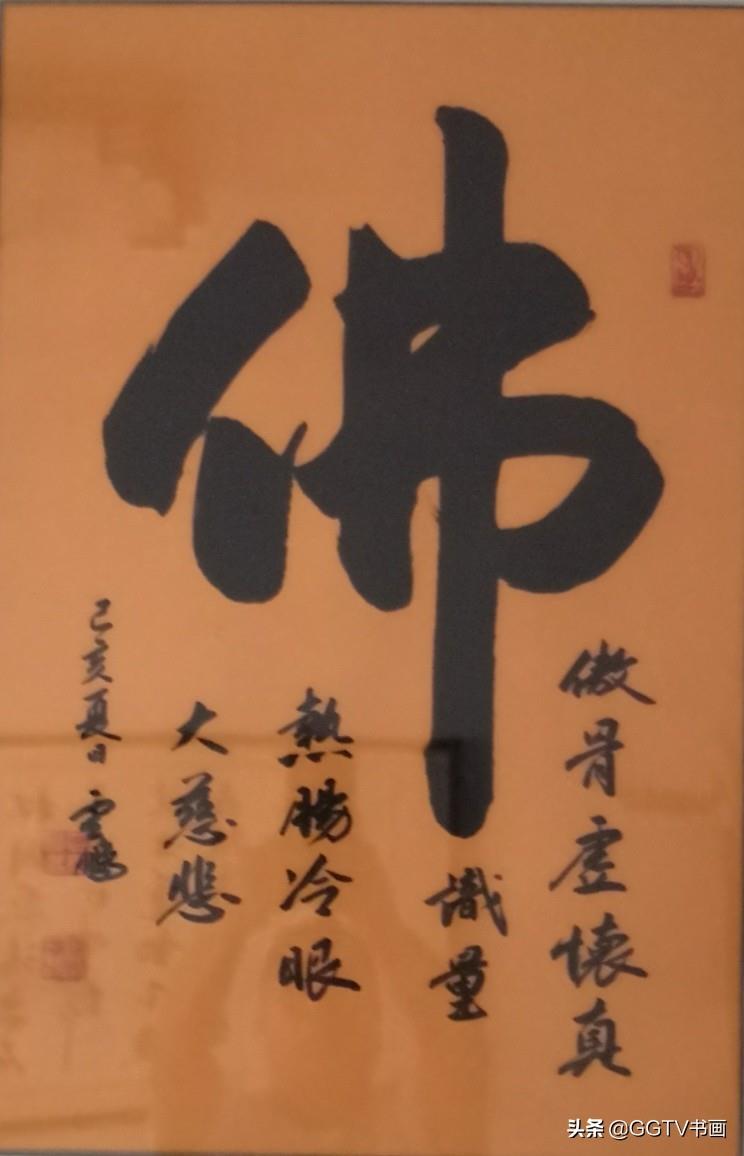 佛
傲骨虛懷真
識量
熱腸冷眼
大慈悲
己亥夏日 雲鵬
头条 @GGTV书画